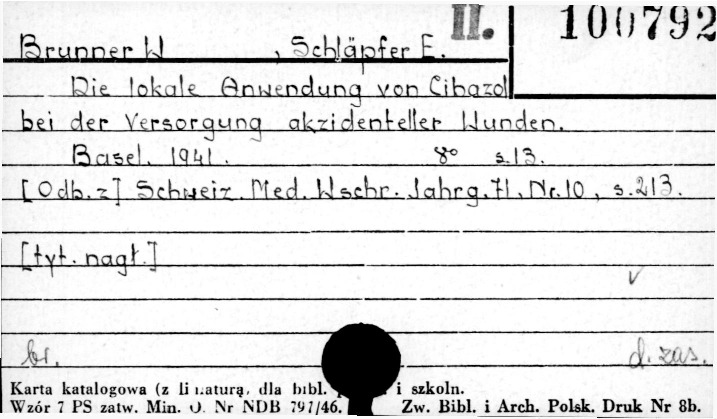 II. 100792
Brunner W , Schläpfer E.
Die lokale Anwendung von Cibazol
bei der Versorgung akzidenteller Wunden.
Basel. 1941. 8° s.13.
[Odb. z] Schweiz. Med. Wschr. Jahrg. 71, Nr. 10, s. 213.
[tyt. nagł.]
br. d. zas.
Karta katalogowa (z linaturą, dla bibl. i szkoln.
Wzór 7 PS zatw. Min. O. Nr NDB 797/46. Zw. Bibl. i Arch. Polsk. Druk Nr 8b.